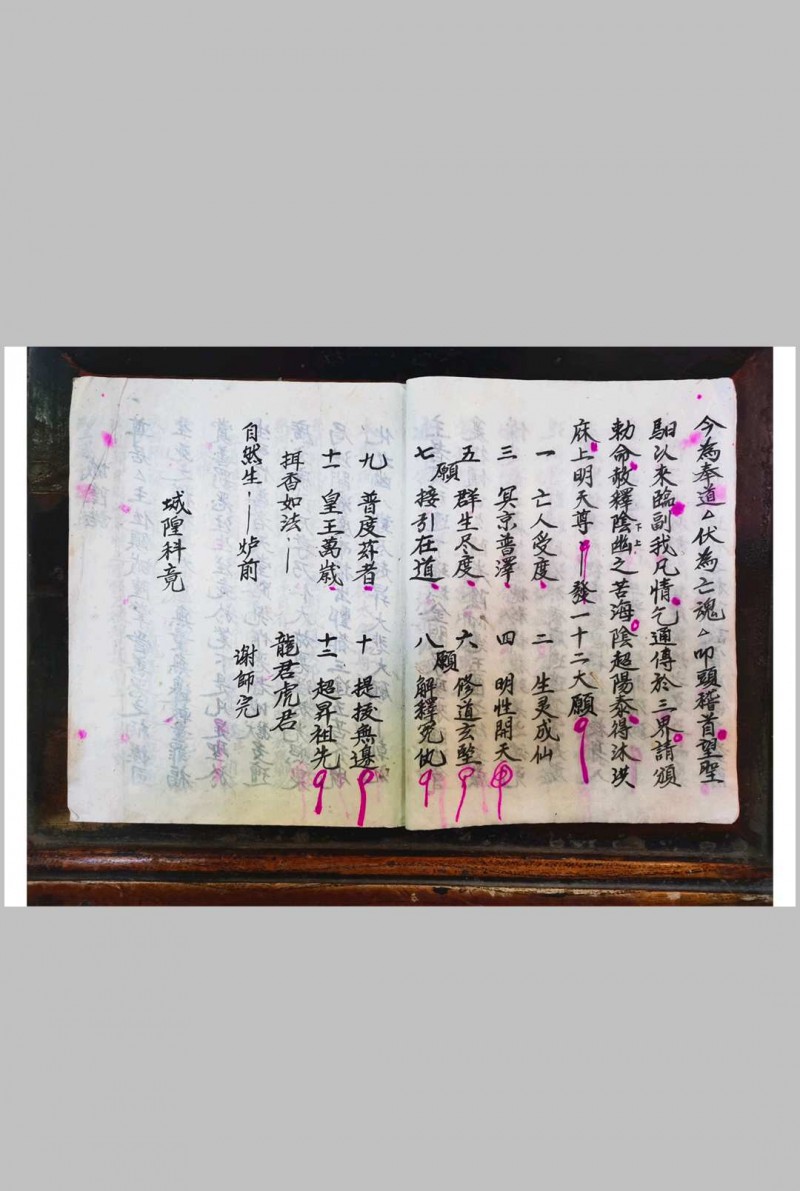 今為奉道△伏為亡魂△叩頭稽首望聖
馹以来臨副我凡情乞通傳於三界請頒
勅命赦釋陰幽之苦海陰超陽泰得沐洪
下上
庥上明天尊 發一十二大願
一 亡人受度 二 生灵成仙
三 冥京普澤 四 明性開天
五 群生尽度 六 修道玄堅
七願接引在道 八願解釋冤仇
九 普度 者 十 提拔無邊
十一 皇王萬歳 十二 超昇祖先
揖香如法 龍君虎君
自然生 炉前 谢師完
城隍科竟